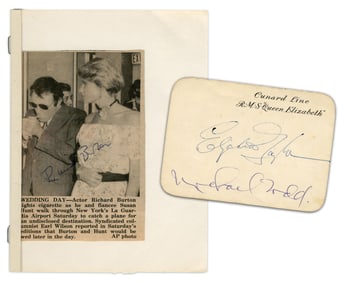 Richard Burton
WEDDING DAY—Actor Richard Burton
lights cigarette as he and fiancee Susan
Hunt walk through New York's La Guar-
dia Airport Saturday to catch a plane for
an undisclosed destination. Syndicated col-
umnist Earl Wilson reported in Saturday's
editions that Burton and Hunt would be
wed later in the day. AP photo
Cunard Line
R.M.S "Queen Elizabeth"
Elizabeth Taylor
Michael Todd